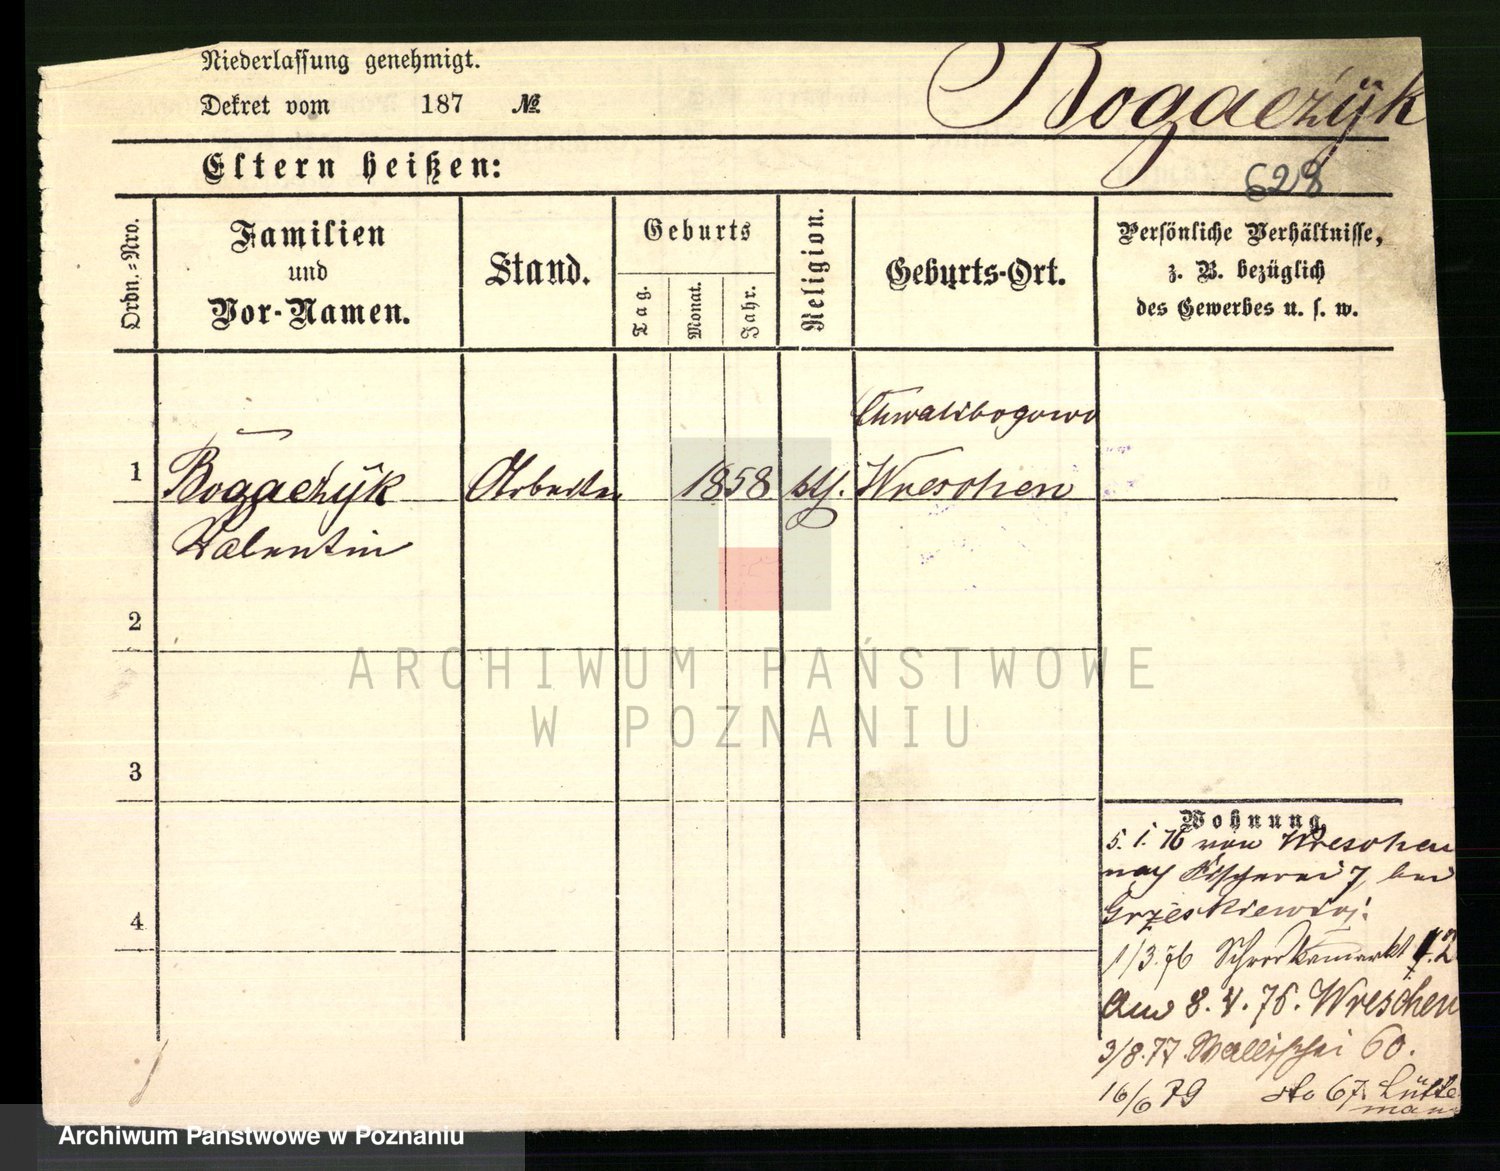 Niederlassung genehmigt.
Dekret vom 187 №
Bogaczÿk
Eltern heißen:
628
Ordn.=Nro.
Familien
und
Vor-Namen.
Stand.
Geburts
Tag.
Monat.
Jahr.
Religion.
Geburts-Ort.
Persönliche Verhältnisse,
z. B. bezüglich
des Gewerbes u. s. w.
Chwalibogowo
1 Bogaczÿk Arbeiter 1858 kth. Wreschen
Valentin
2
3
4
Wohnung.
5. 1. 76 von Wreschen
nach Fischerei 7 bei
Grzeskiewicz.
1/3. 76 Schrodkamarkt 2
8. 4. 76. Wreschen
3/8. 77 Wallischei 60.
16/6 79 dto 67. Lütte
mann
ARCHIWUM PAŃSTWOWE
W POZNANIU
Archiwum Państwowe w Poznaniu